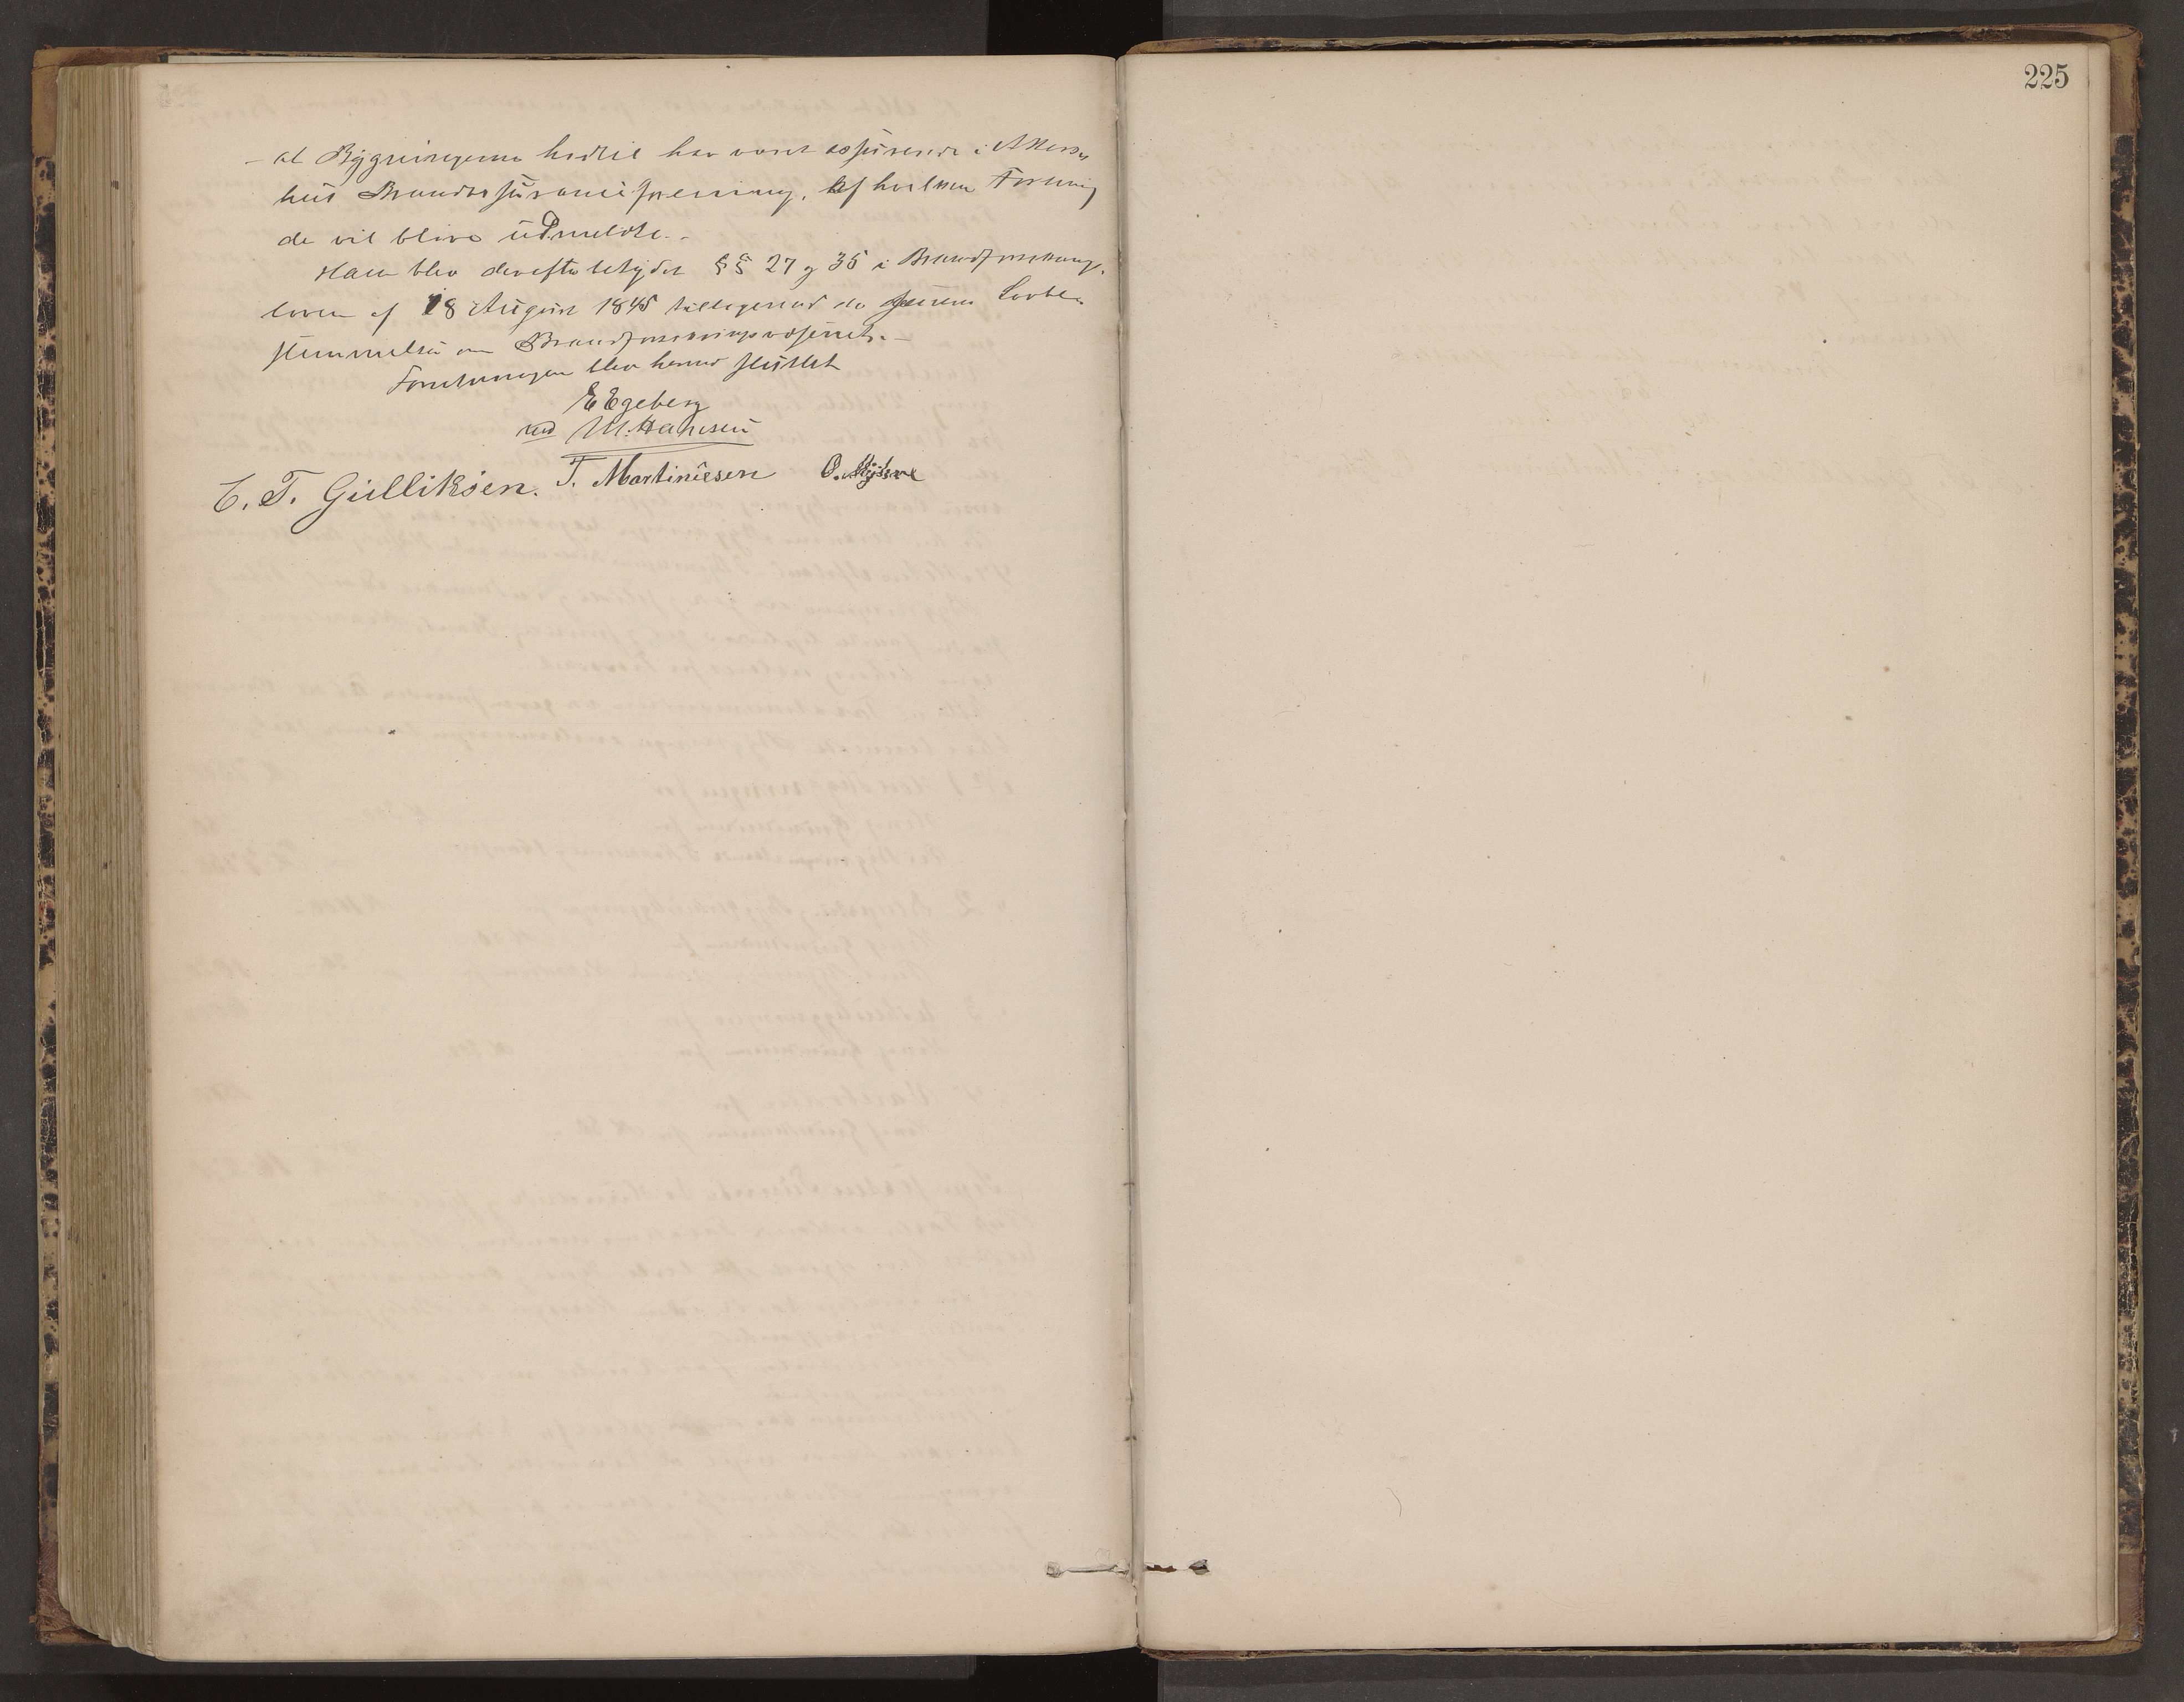 225
- at Bygningerne hidtil har været assurerede i Akers
hus Brandassuranceforening, af hvilken Forening
de vil blive udmeldte. -
Han blev derefter betydet §§ 27 og 35 i Brandforsikrings
loven af 18 August 1845 tilligemed de senere Lovbe-
stemmelser om Brandforsikringsvæsenet. -
Forretningen blev hermed sluttet
E Egeberg
ved M. Hansen
C. T. Gulliksen. T. Martiniusen O.